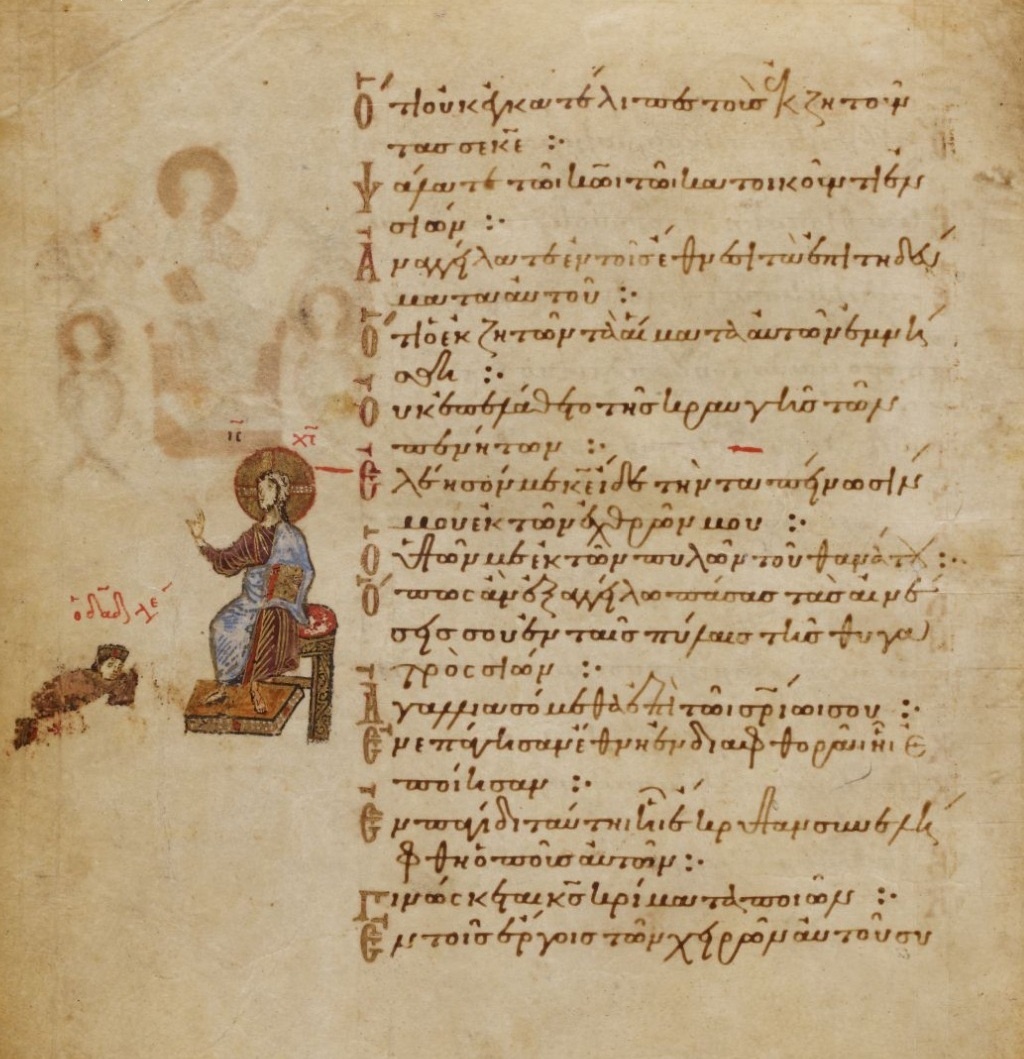 Ὅτι οὐκ ἐγκατέλιπες τοὺς ἐκζητοῦν
τας σε κ̅ε̅ :·
Ψάλατε τῶι κ̅ω̅ι τῶι κατοικοῦντι ἐν
σιών :·
Ἀναγγείλατε ἐν τοῖς ἔθνεσι τὰ ἐπιτηδεύ
ματα αὐτοῦ :·
Ὅτι ὁ ἐκζητῶν τὰ αἵματα αὐτῶν ἐμνή
σθη :·
Οὐκ ἐπελάθετο τῆς κραυγῆς τῶν
πενήτων :·
ι̅ς̅ χ̅ς̅
Ἐλέησόν με κ̅ε̅ ἴδε τὴν ταπείνωσίν
μου ἐκ τῶν ἐχθρῶν μου :·
Ὁ ὑψῶν με ἐκ τῶν πυλῶν τοῦ θανάτου :·
Ὅπως ἂν ἐξαγγείλω πάσας τὰς αἰνέ
σεις σου ἐν ταῖς πύλαις τῆς θυγα
τρὸς σιών :·
ὁ δα̅δ̅ λέ
Ἀγαλλιασόμεθα ἐπὶ τῶι σ̅ρ̅ίωι σου :·
Ἐνεπάγησαν ἔθνη ἐν διαφθορᾶι ἧι ἐ
ποίησαν :·
Ἐν παγίδι ταύτηι ἧι ἔκρυψαν συνελή
φθη ὁ ποῦς αὐτῶν :·
Γινώσκεται κ̅ς̅ κρίματα ποιῶν :·
Ἐν τοῖς ἔργοις τῶν χειρῶν αὐτοῦ συ